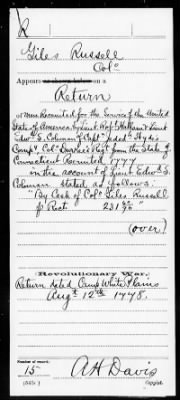 R
Giles Russell
Col°
Appears on a
Return
of men Recruited for the Service of the United
State of America by Lieut Col° Nathan & Lieut
Edwd S. Coleman of Capt Jedd Hydes
Compy, Col° Durkee's Regt from the State of
Connecticut Recruited 1777
in the account of Lieut Edwd S.
Coleman stated as follows:
"By Cash of Col° Giles Russell
p Rect 231
(over)
Revolutionary War.
Return dated Camp White Plains
Augt 12th 1778.
Number of record:
15
A H Davis
Copyist.